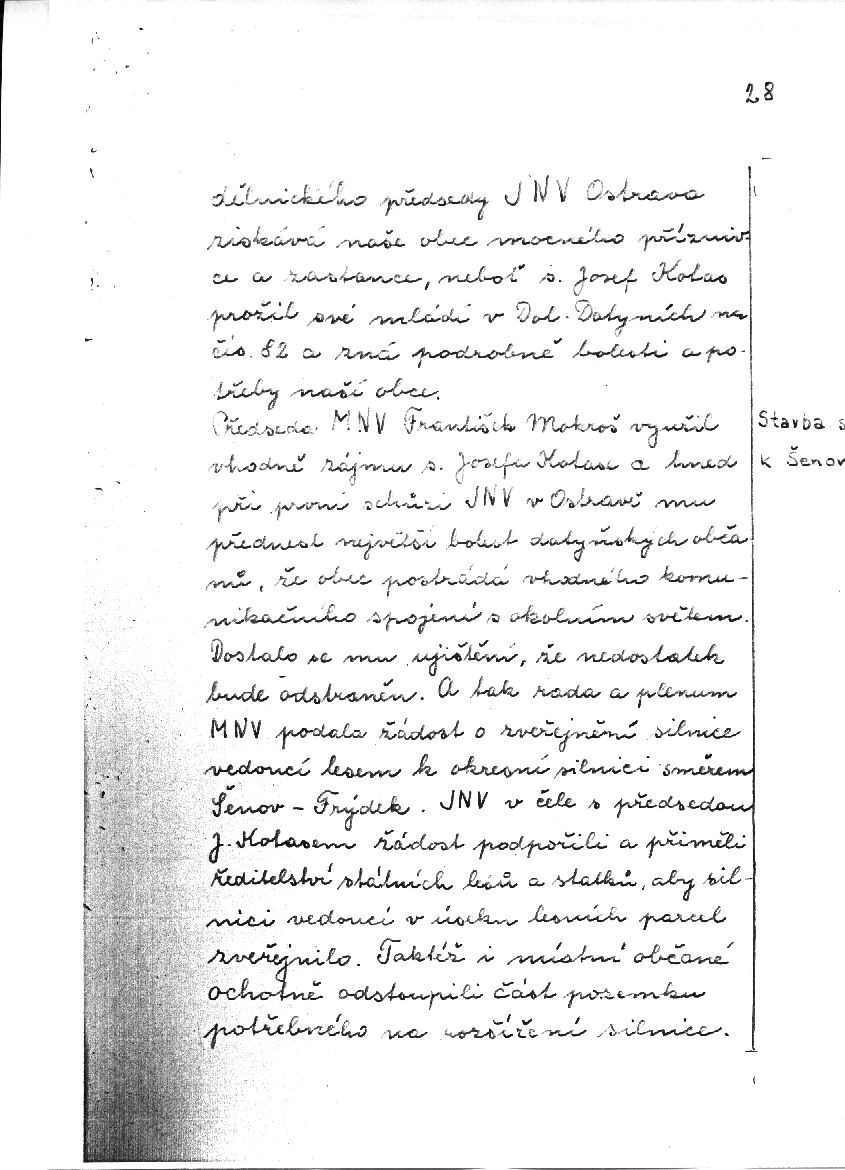 28
dělnického předsedy JNV Ostrava
získává naše obec mocného přízniv-
ce a zastance, neboť s. Josef Kotas
prožil své mládí v Dol. Datyních na
čís. 82 a zná podrobně bolesti a po-
třeby naší obce.
Předseda MNV František Mokroš využil
Stavba s
vhodně zájmu s. Josefa Kotase a hned
k Šenov
při první schůzi JNV v Ostravě mu
přednest největší bolest datyňských obča
nů, že obec postrádá vhodného komu-
nikačního spojení s okolním světem.
Dostalo se mu ujištění, že nedostatek
bude odstraněn. A tak rada a plenum
MNV podala žádost o zveřejnění silnice
vedoucí lesem k okresní silnici směrem
Šenov - Frýdek. JNV v čele s předsedou
J. Kotasem žádost podpořili a přiměli
ředitelství státních lesů a statků, aby sil-
nici vedoucí v úseku lesních parcel
zveřejnilo. Taktéž i místní občané
ochotně odstoupili část pozemku
potřebného na rozšíření silnice.